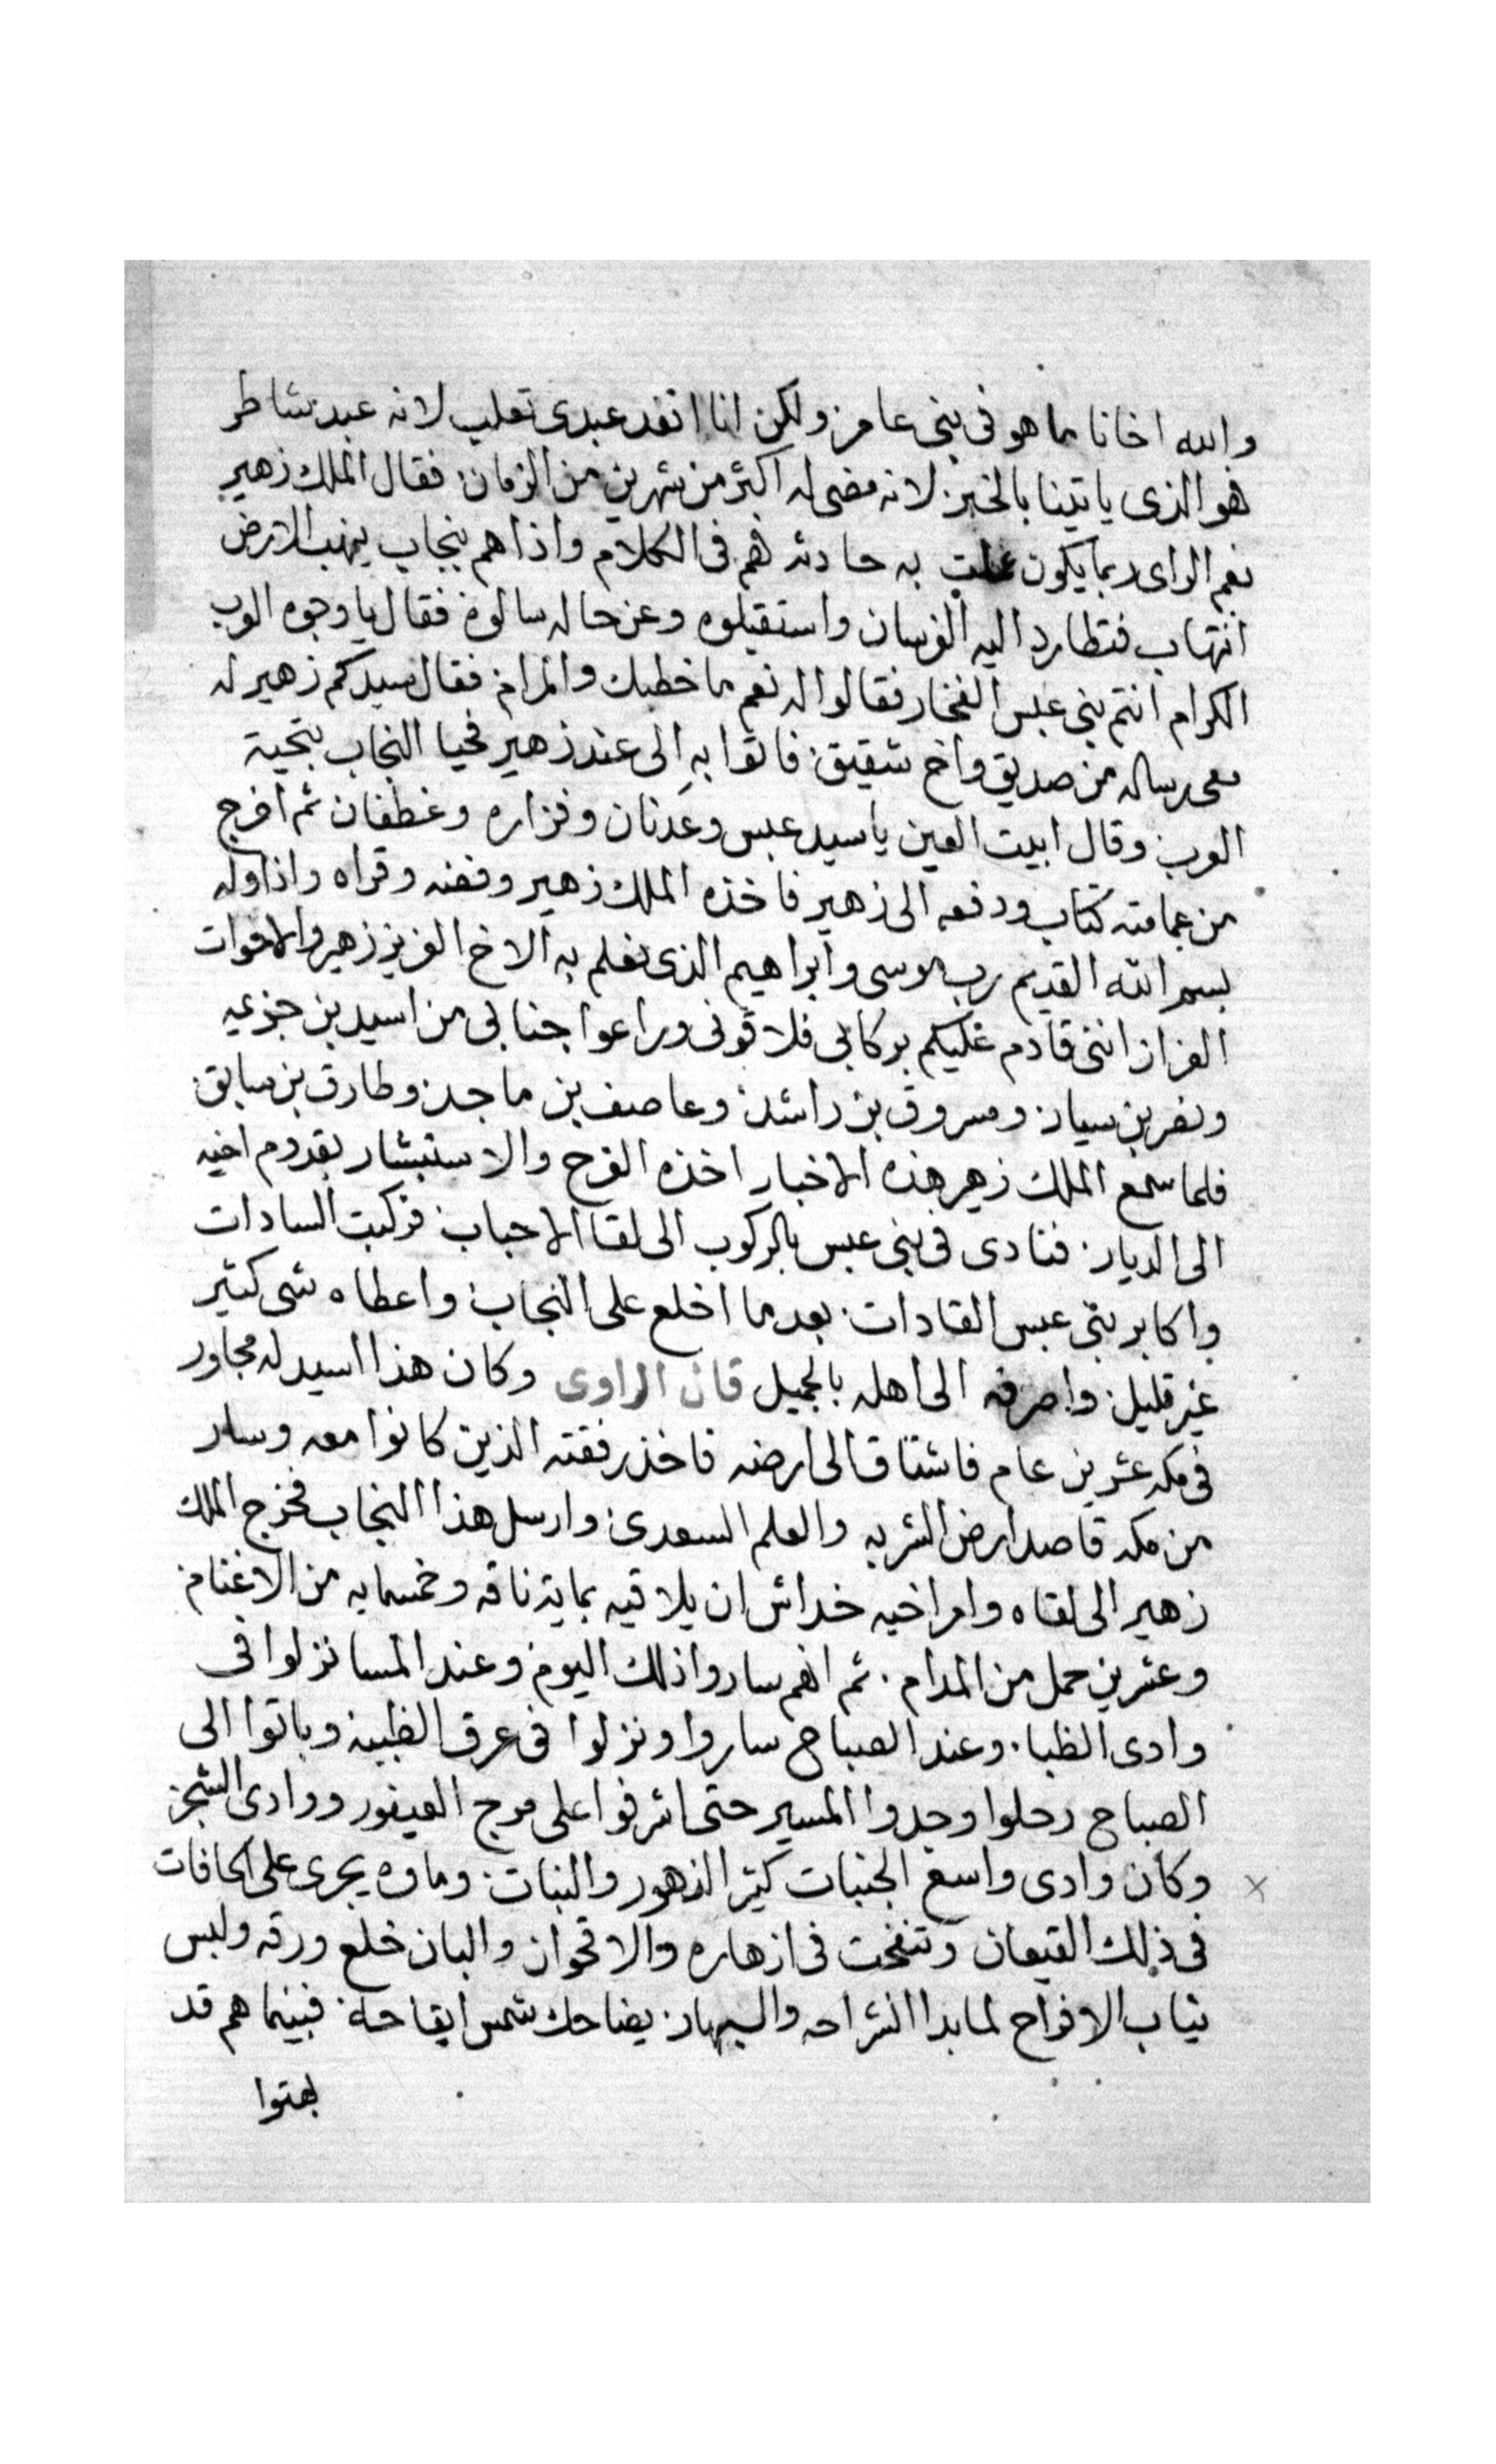 والله اخانا ما هو فى بنى عامر ولكن انا انفد عبدى تعلب لانه عبد شاطر
هو الذى ياتينا بالخبر لانه مضى له اكثر من شهرين من الزمان فقال الملك زهير
نعم الراى ربما يكون علمت به حادثه فهم فى الكلام واذا هم بنجاب ينهب الارض
انتهاب فتطارد اليه الفرسان واستقبلوه وعن حاله سالوه فقال يا وجوه العرب
الكرام انتم بنى عبس الفخار فقالوا له نعم ما خطبك والمرام فقال سيدكم زهير له
معى رساله من صديق واخ شقيق فاتوا به الى عند زهير فحيا النجاب بتحية
العرب وقال ابيت اللعين يا سيد عبس وعدنان وفزاره وغطفان ثم اخرج
من عمامته كتاب ودفعه الى زهير فاخذه الملك زهير وفضه وقراه واذا اوله
بسم الله القديم رب موسى وابراهيم الذى نعلم به الاخ العزيز زهير والاخوات
العزاز اننى قادم عليكم بركابى فلاقونى وراعوا جنابى من اسيد بن جزعيه
ونفر بن سيار ومسروق بن راشد وعاصف بن ماجد وطارق بن سابق
فلما سمع الملك زهير هذه الاخبار اخذه الفرح والاستبشار بقدوم اخيه
الى الديار فنادى فى بنى عبس بالركوب الى لقا الاحباب فركبت السادات
واكابر بنى عبس القادات بعد ما اخلع على النجاب واعطاه شى كثير
غير قليل واصرفه الى اهله بالجميل قال الراوى وكان هذا اسيد له مجاور
فى مكه عشرين عام فاشتاق الى ارضه فاخذ رفقته الذين كانوا معه وسار
من مكه قاصد ارض الشربه والعلم السعدى وارسل هذا النجاب فخرج الملك
زهير الى لقاه وامر اخيه خداش ان يلاقيه بماية ناقه وخمسمايه من الاغنام
وعشرين حمل من المدام ثم انهم ساروا ذلك اليوم وعند المسا نزلوا فى
وادى الظبا وعند الصباح ساروا ونزلوا فى عرق الظبيه وباتوا الى
الصباح رحلوا وجدوا المسير حتى اشرفوا على مرج العيفور ووادى الشجر
وكان وادى واسع الجنبات كثير الزهور والنبات وماوه يجرى على الحافات
فى ذلك القيعان وتنفحت فى ازهاره والاقحوان والبان خلع ورقه ولبس
ثياب الافراح لما بدا انشراحه والبهار يضاحك شمس ايقاحه فبينما هم قد
بهتوا